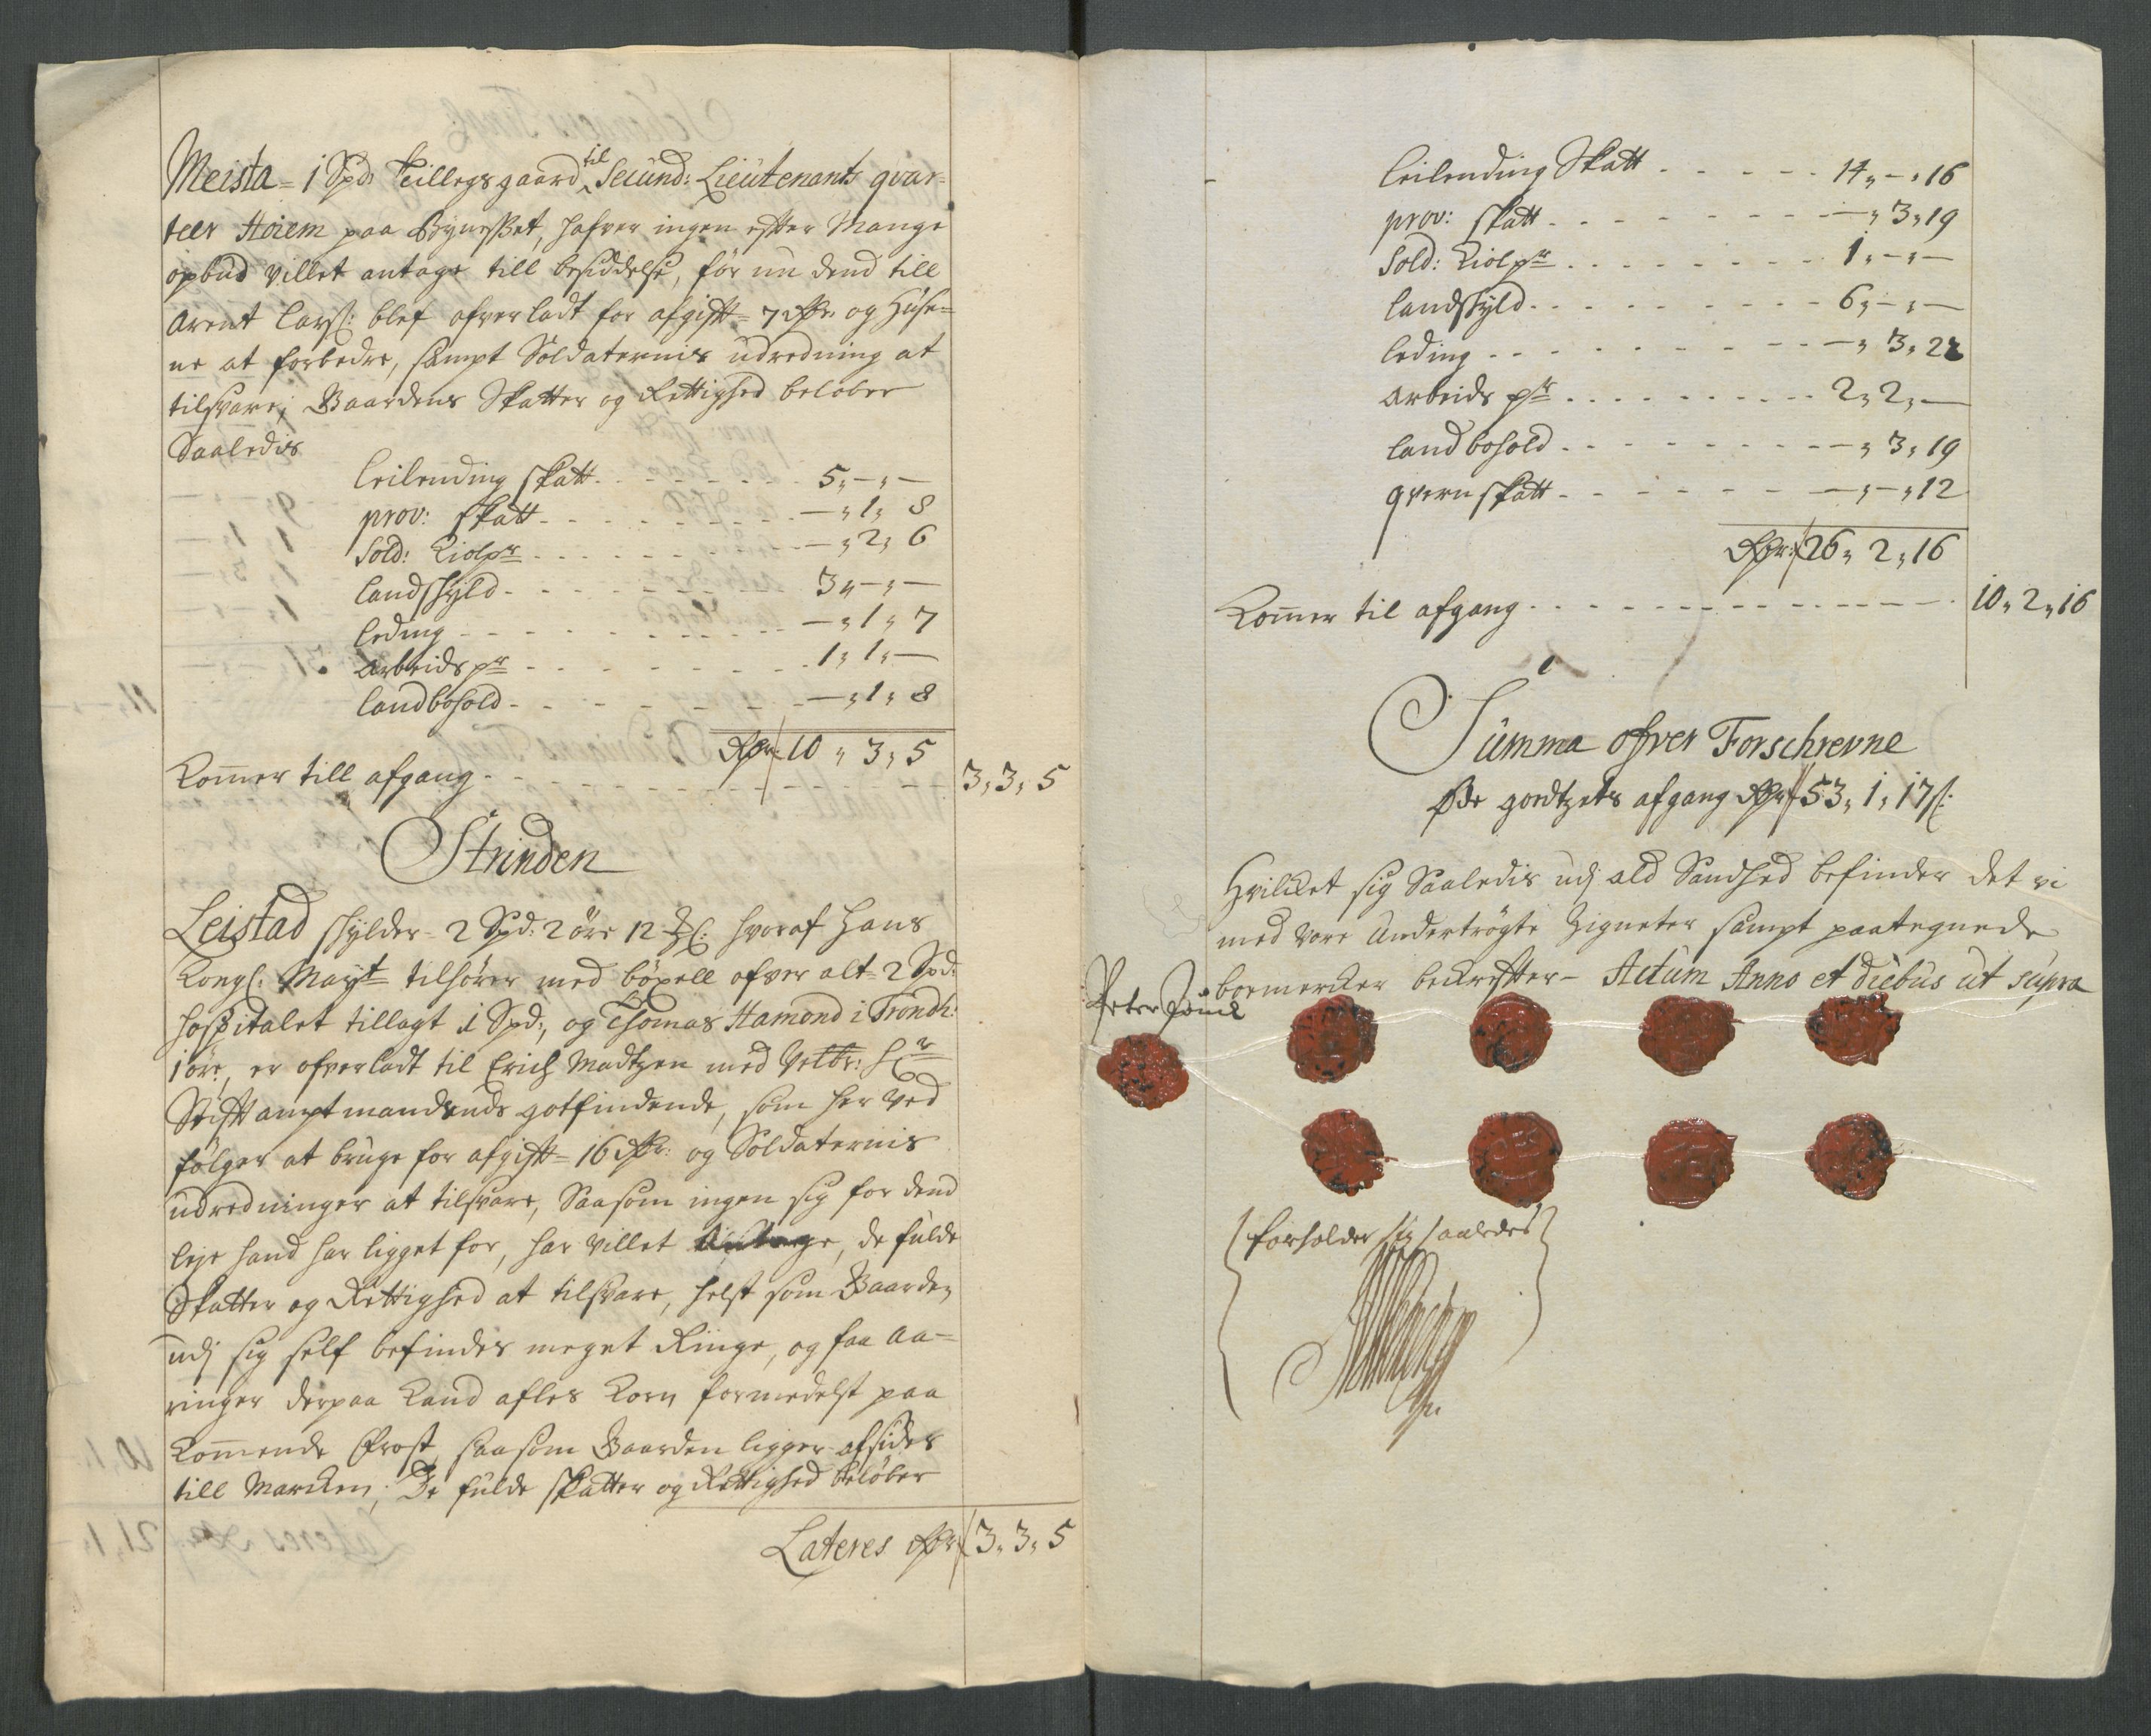 Meista = 1 Spd: Tillegsgaard til Secund: Lieutenants qvar-
teer Høiem paa Bynesset, hafver ingen efter Mange
opbud villet antage till besiddelse, før nu dend till
Arent Lars: blef ofverladt for afgifft = 7 Rdr. og Huse-
ne at forbedre, sampt Soldaternis udredning at
tilsvare; Gaardens Skatter og Rettighed beløber
Saaledis
Leilending skatt 5„ - „ -
prov: skatt - „ 1„ 8
Sold: Kiolpr - „ 2„ 6
Landskyld 3„ - „ -
Leding - „ 1„ 7
Arbeidspr 1„ 1„ -
Landbohold - „ 1„ 8
Rdr: 10 „ 3„ 5
Kommer till afgang 3„ 3„ 5
Strinden
Leistad skylder = 2 Spd: 2 øre 12 hvoraf Hans
Kongl: Mayt tilhører med böxell ofver alt = 2 Spd:
Hospitalet tillagt 1 Spd:, og Thomas Hamond i Trondh:
1 øre, er ofverladt til Erich Madtzen med Velbr: Hr
Stifftamptmandends gotfindende, som her ved
følger at bruge for afgifft = 16 Rdr: og Soldaternis
udredninger at tilsvare, Saasom ingen sig for dend
leje hand har ligget for, har villet Antage, de fulde
Skatter og Rettighed at tilsvare, helst som Gaarden
udj sig self befindes meget Ringe, og faa Aa-
ringer derpaa kand afles Korn formedelst paa
Kommende Frost, saasom Gaarden ligger afsides
till Marcken; De fulde skatter og Rettighed beløber
Lateres Rdr 3„ 3„ 5
Leilending Skatt 14„ - „ 16
prov: skatt - „ 3„ 19
Sold: Kiolpr 1„ - „ -
Landskyld 6„ - „ -
Leding - „ 3„ 22
Arbeids pr 2„ 2„ -
Landbohold - „ 3„ 19
qvernskatt - „ - „ 12
Rdr: 26„ 2„ 16
Kommer til afgang 10„ 2„ 16
Summa ofver Forschrevne
Øde goedtzets afgang Rdr 53„ 1„ 17 s:
Hvilcket sig Saaledis udj ald Sandhed befinder det vi
med vore Undertrögte Zigneter sampt paategnede
boemercker bekreffter - Actum Anno et diebus ut supra
Peter
Forholder sig saaledes